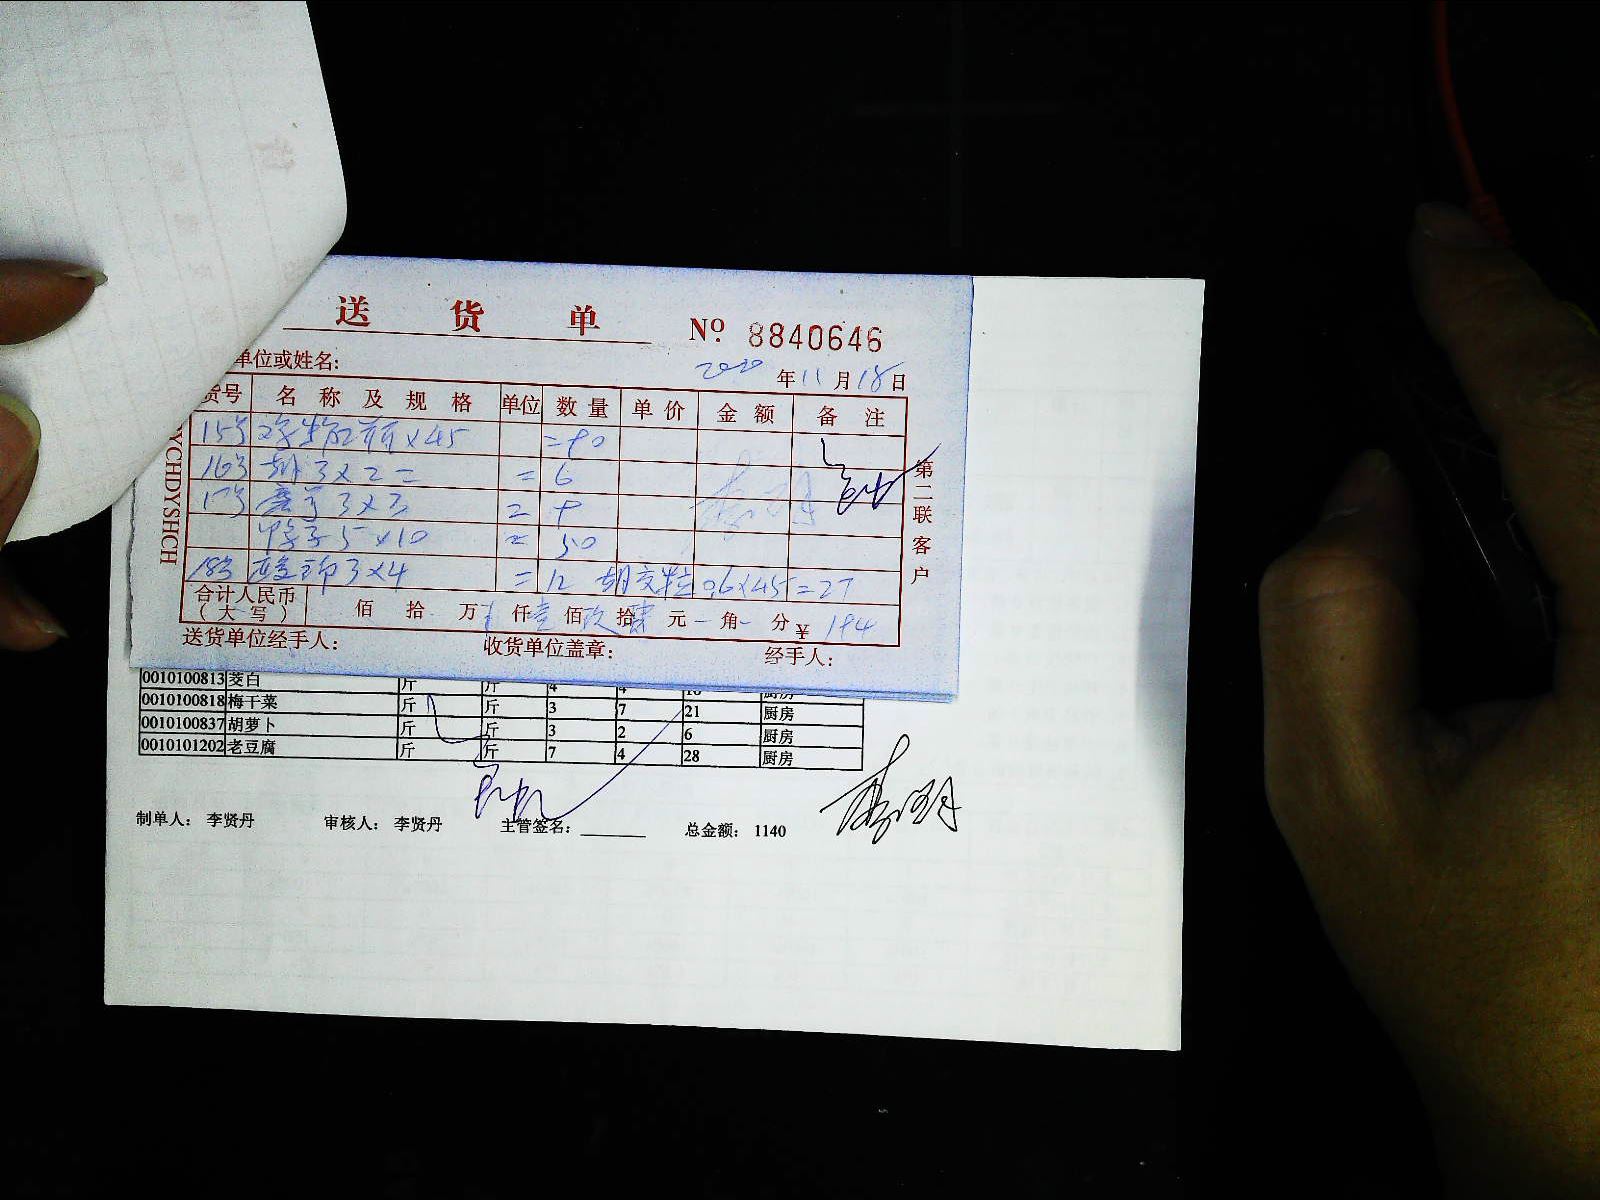 送 货 单
No. 8840646
单位或姓名:
2020 年 11 月 18 日
货号 名称及规格 单位 数量 单价 金额 备注
15号 ×45 =90
16号 胡 3×2 = = 6
17号 3×3 = 9
5×10 = 50
18号 3×4 = 12 0.6×45=27
合计人民币
(大写) 佰 拾 万 仟 壹 佰 玖 拾 肆 元 角 分 ¥ 194
送货单位经手人: 收货单位盖章: 经手人:
YCHDYSHCH
第二联客户
0010100813 茭白 斤 斤 4 4 16 厨房
0010100818 梅干菜 斤 斤 3 7 21 厨房
0010100837 胡萝卜 斤 斤 3 2 6 厨房
0010101202 老豆腐 斤 斤 7 4 28 厨房
制单人: 李贤丹 审核人: 李贤丹 主管签名: 总金额: 1140